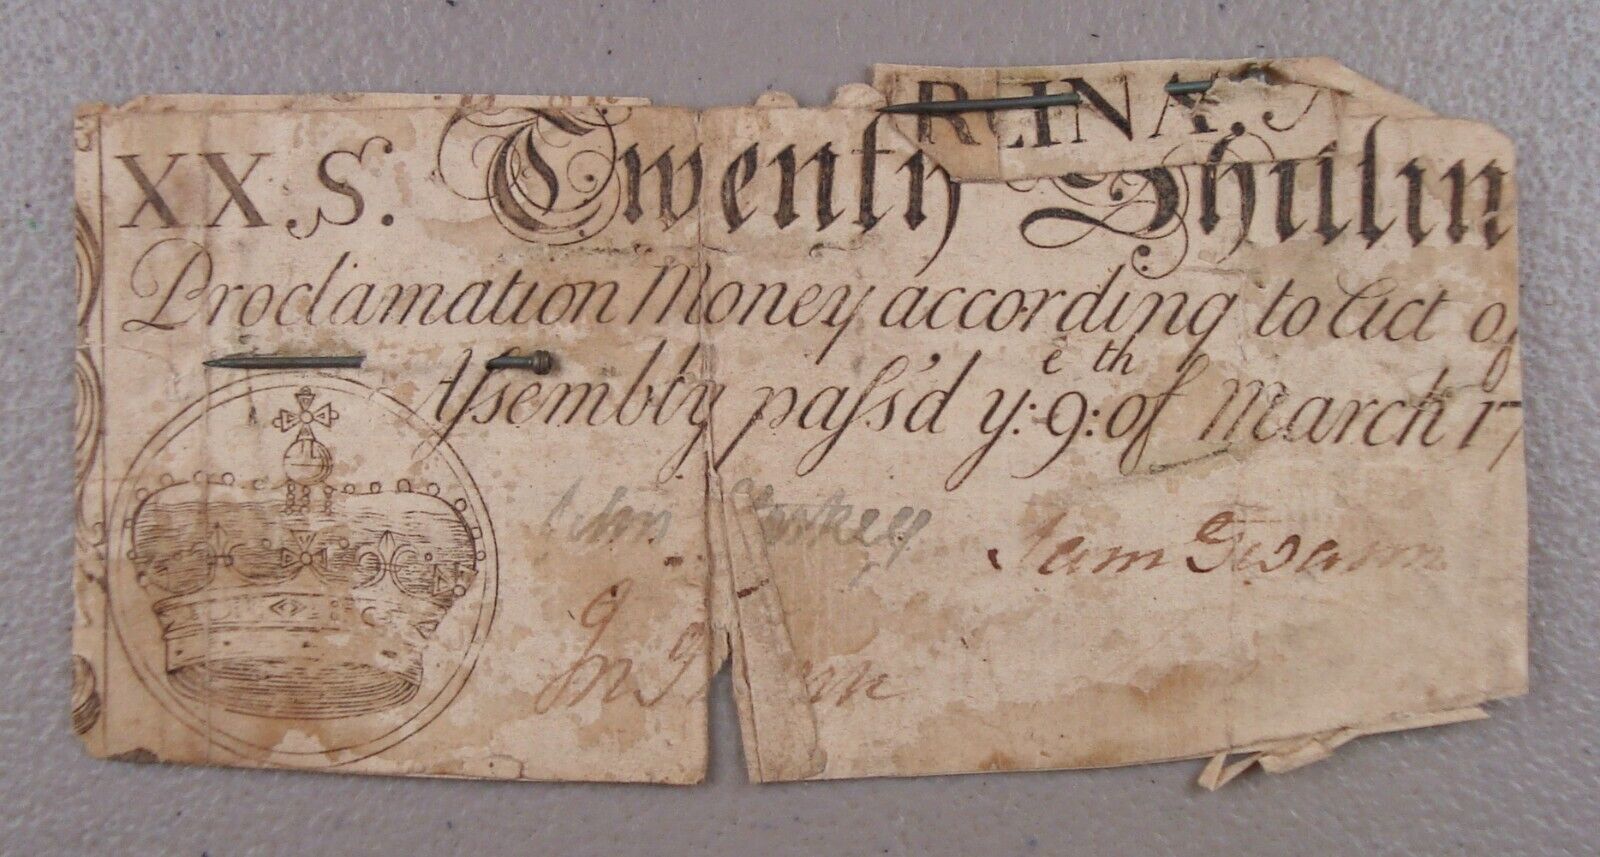 RLINA.
XX.S. Twenty Shillin
Proclamation Money according to Act of
Assembly pass'd y:e 9:th of March 17
John Starkey
Sam Swann